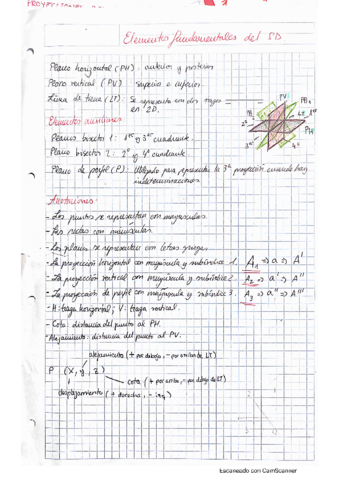 Elementos fundamentales del SD
Plano horizontal (PH): anterior y posterior
Plano vertical (PV) superior e inferior.
Línea de tierra (LT): Se representa con dos rayas
en 2D.
PV
PH
Elementos auxiliares
Planos bisector 1: 1er y 3er cuadrante.
Plano bisector 2: 2º y 4º cuadrante.
Plano de perfil (P): Utilizado para representar la 3ª proyección cuando hay
indeterminaciones
Anotaciones:
- Los puntos se representan con mayúsculas.
- Las rectas con minúsculas.
- Los planos se representan con letras griegas.
- La proyección horizontal con mayúscula y subíndice 1. A1 => a => A'
- La proyección vertical con mayúscula y subíndice 2. A2 => a' => A''
- La proyección de perfil con mayúscula y subíndice 3. A3 => a'' => A'''
- H: traza horizontal; V: traza vertical.
- Cota: distancia del punto al PH.
- Alejamiento: distancia del punto al PV.
alejamiento (+ por debajo, - por encima de LT)
P (x, y, z)
cota (+ por arriba, - por debajo de LT)
desplazamiento (+ derecha, - izq)
Escaneado con CamScanner